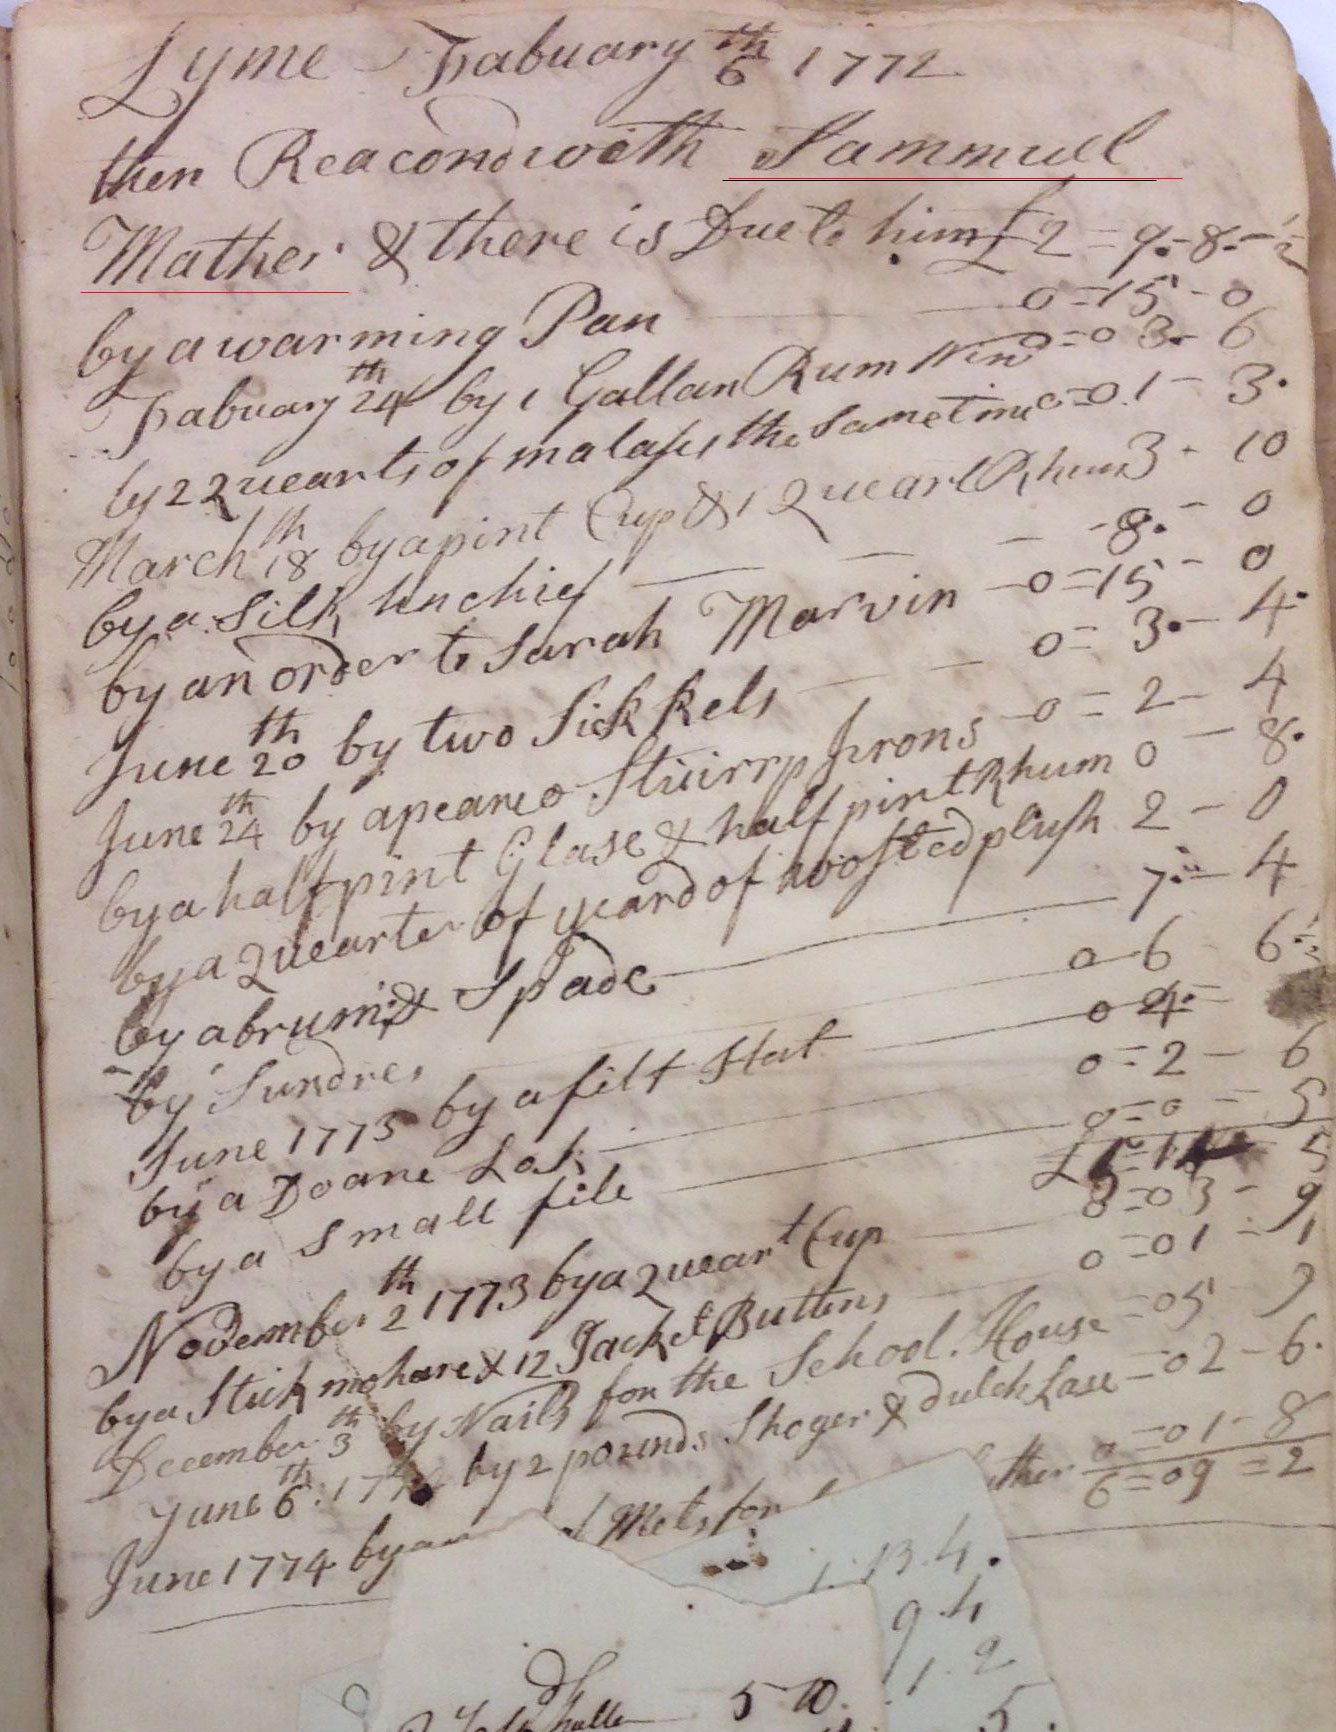 Lyme Fabuary 6th 1772
then Reacond with Sammuel
Mather & there is Due to him £2=9-8-1/2
by a warming Pan 0=15-0
Fabuary 24th by 1 Gallan Rum 0=03-6
by 2 Quearts of malases the same time 0=01-3
March 18th by a pint Cup & 1 Queart Rhum 3-10
by a silk hnchief -8-0
by an order to Sarah Marvin 0=15-0
June 20th by two Sickkels 0=3-4
June 24th by a peare o Stuirrp Jrons 0=2-4
by a half pint Glase & half pint Rhum 0-8
by a Quearter of yeard of woosted plush 2-0
by a brum & Spade 7-4
by Sundres 0 6 6 1/2
June 1773 by a filt Hat 0 4
by a Doare Lok 0=2-6
by a small file 0=0=5
£5 5
November 2th 1773 by a Queart Cup 03-9
by a Stick mohare & 12 Jacket Buttens 0=01=1
December 3th by Nails for the School House =05 9
June 6th by 2 pounds Shoger & dutch Lase =02-6
June 1774 by Mets for ather 0=01-8
6=09=2
1.13.4
9.4
1.2
5 10
5.